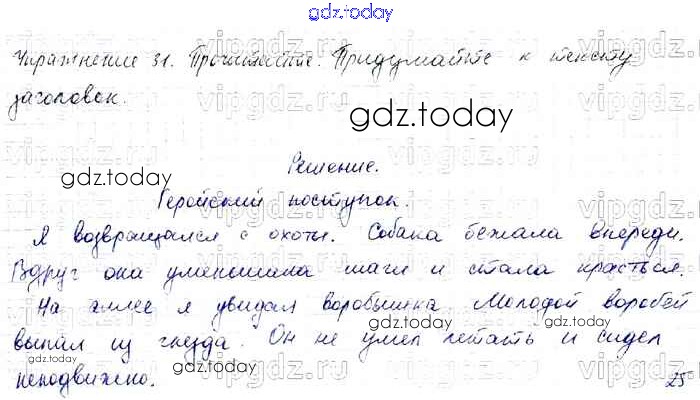 gdz.today
Упражнение 31. Прочитайте. Придумайте к тексту
заголовок.
gdz.today
Решение.
gdz.today
Геройский поступок.
Я возвращался с охоты. Собака бежала впереди.
Вдруг она уменьшила шаги и стала красться.
На аллее я увидал воробышка. Молодой воробей
выпал из гнезда. Он не умел летать и сидел
gdz.today
gdz.today
неподвижно.
25
vipgdz.ru